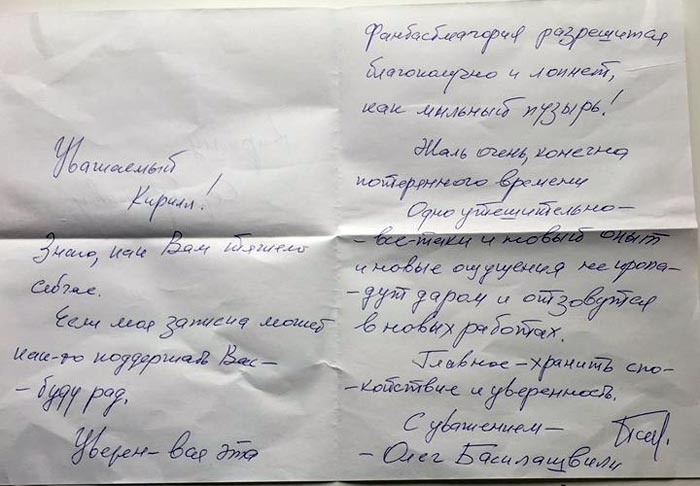 Уважаемый
Кирилл!
Знаю, как Вам тяжело
сейчас.
Если моя записка может
как-то поддержать Вас -
- буду рад.
Уверен - вся эта
фантасмагория разрешится
благополучно и лопнет,
как мыльный пузырь!
Жаль очень, конечно
потерянного времени
Одно утешительно -
- все-таки и новый опыт
и новые ощущения не пропа-
- дут даром и отзовутся
в новых работах.
Главное - хранить спо-
- койствие и уверенность.
С уважением -
- Олег Басилашвили